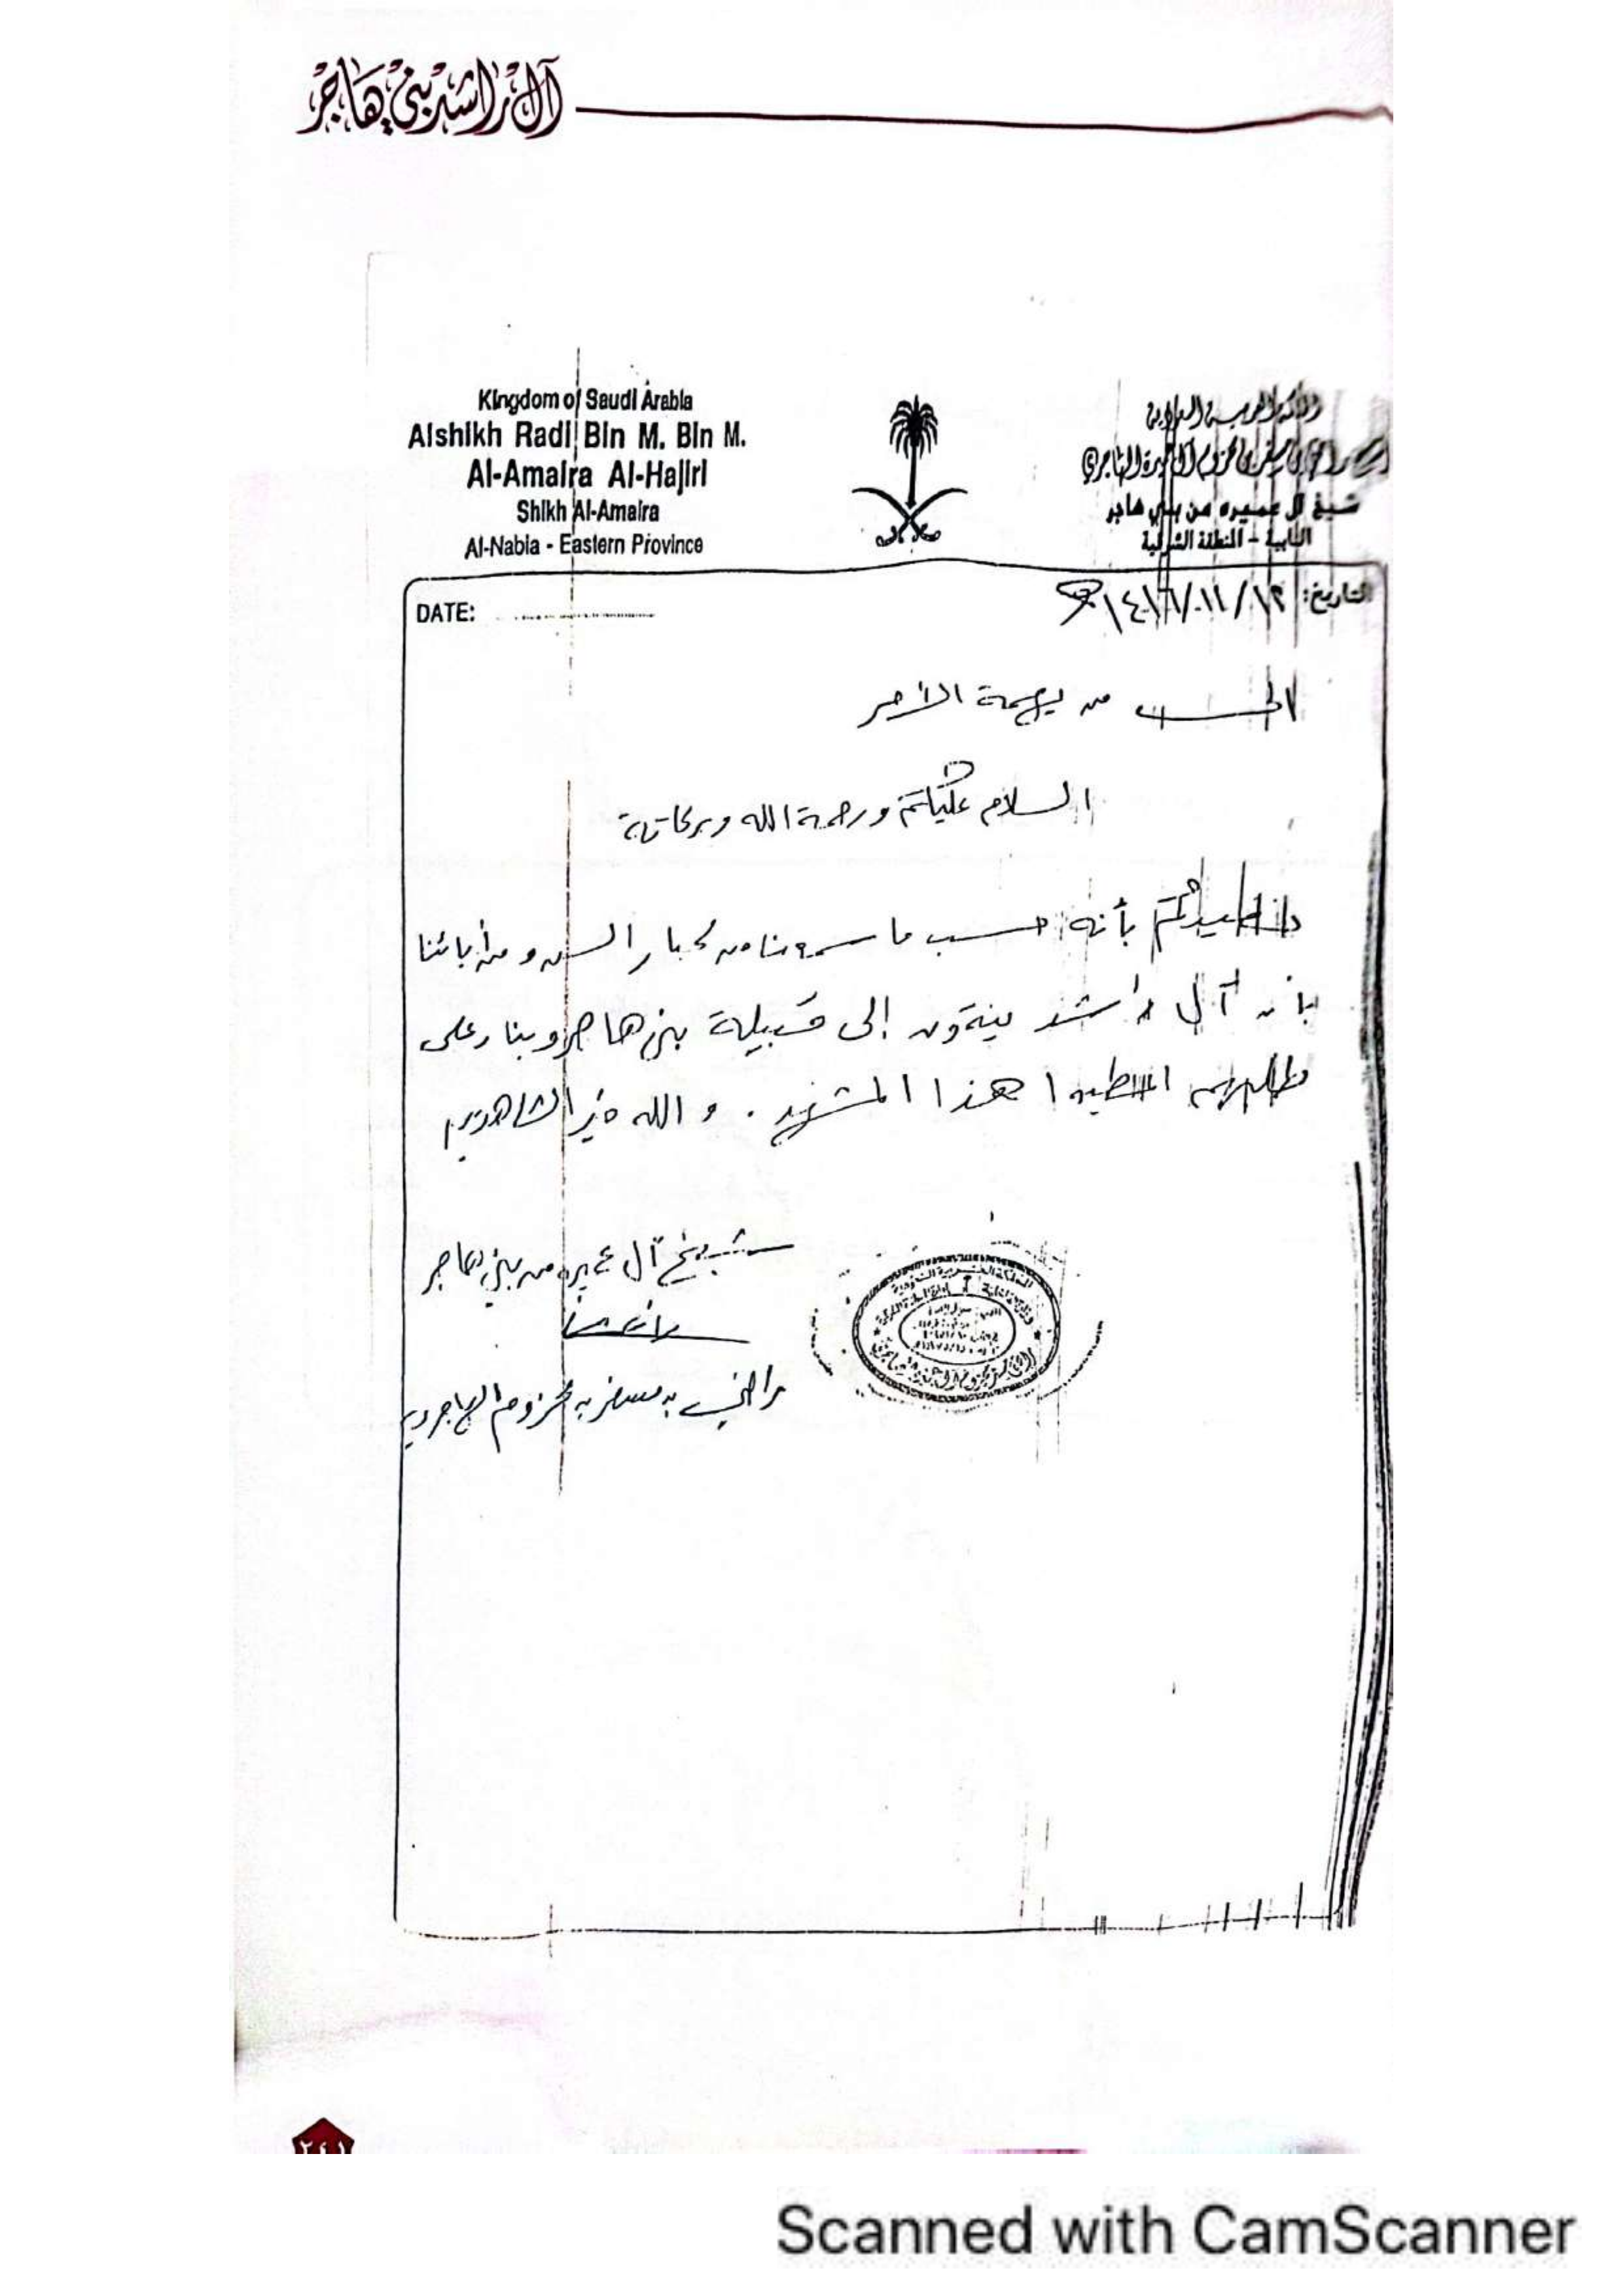 آل راشد بني هاجر
Kingdom of Saudi Arabia
Alshikh Radi Bin M. Bin M.
Al-Amaira Al-Hajiri
Shikh Al-Amaira
Al-Nabia - Eastern Province
المملكة العربية السعودية
راضي بن مسفر بن محزوم آل عميرة الهاجري
شيخ آل عميره من بني هاجر
النابية - المنطقة الشرقية
DATE:
التاريخ: ١٢/١١/١٤١٦هـ
الى من يهمة الأمر
السلام عليكم ورحمة الله وبركاتة
بأنه حسب ما سمعنا من كبار السن و من أبائنا
بأن آل راشد ينتمون إلى قبيلة بني هاجر وبناء على
طلبهم اعطيوا هذا المشهد . و الله خير الشاهدين
شيخ آل عميره من بني هاجر
راضي بن مسفر بن محزوم الهاجري
المملكة العربية السعودية
٢٤١
Scanned with CamScanner